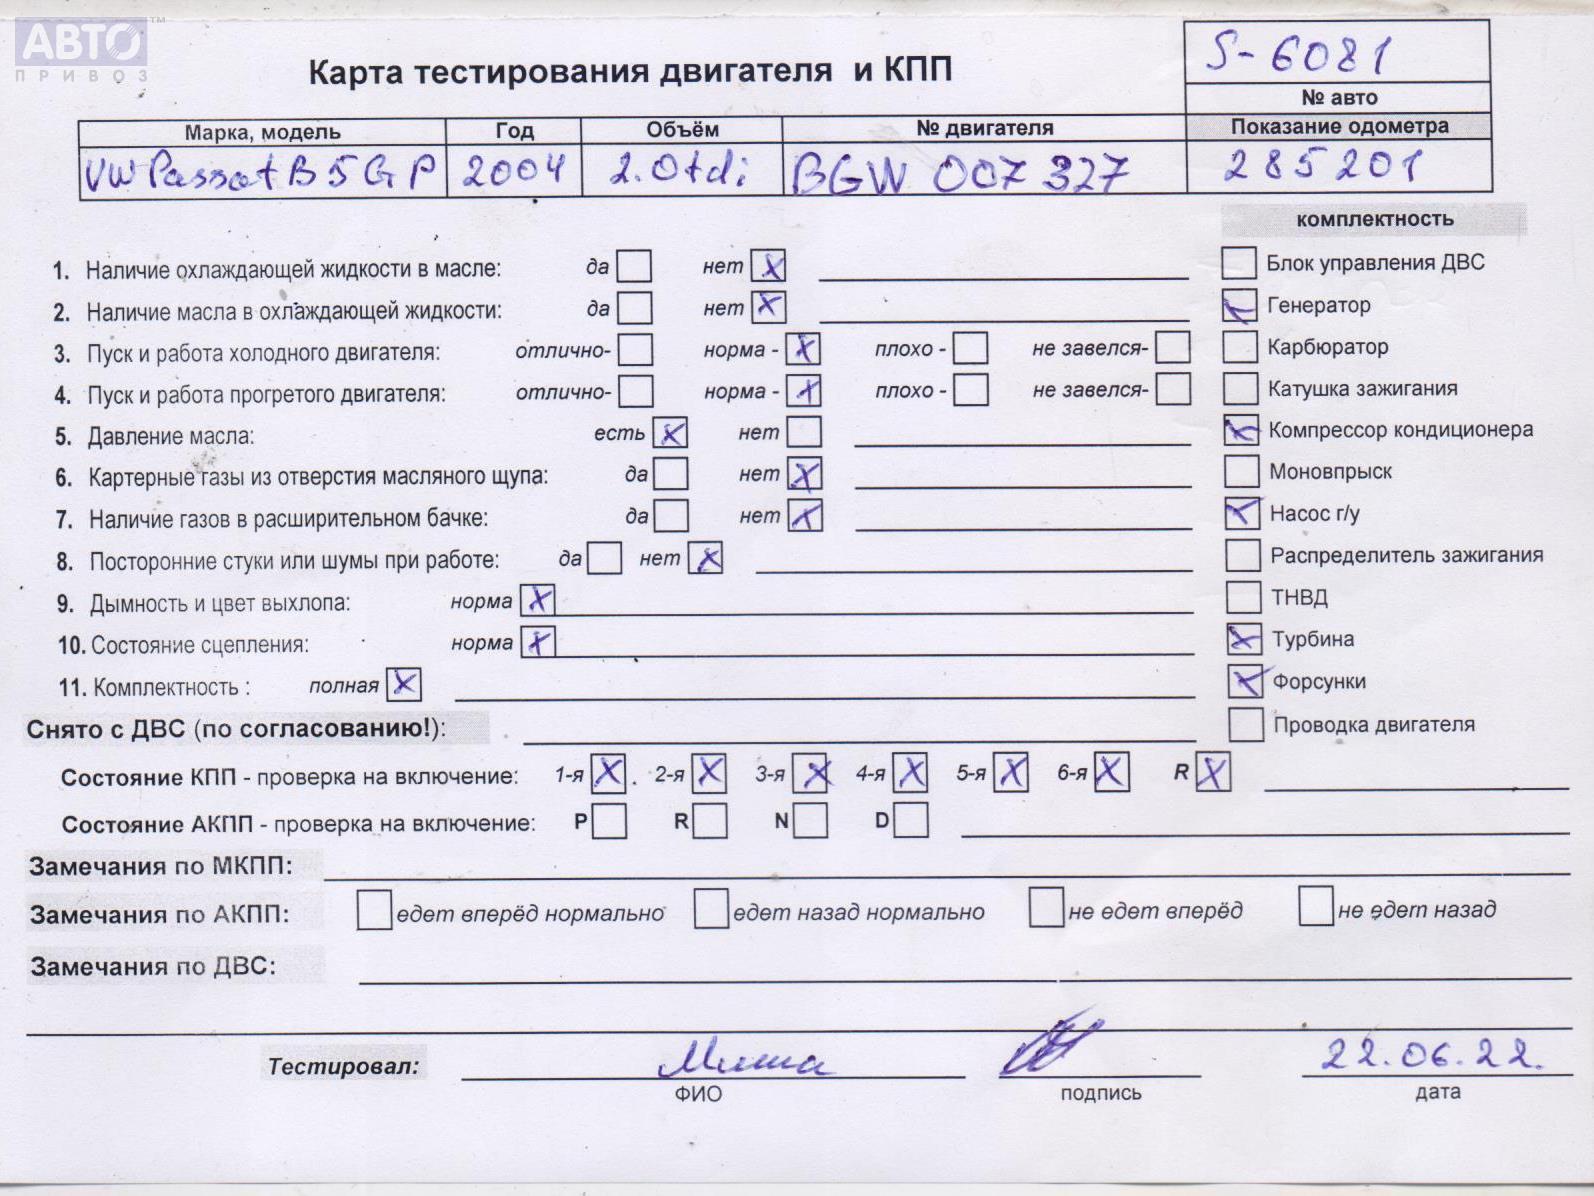 АВТО™
ПРИВОЗ
Карта тестирования двигателя и КПП
S-6081
№ авто
Марка, модель Год Объём № двигателя Показание одометра
VW Passat B5 GP 2004 2.0tdi BGW 007 327 285201
комплектность
1. Наличие охлаждающей жидкости в масле: да нет X
Блок управления ДВС
2. Наличие масла в охлаждающей жидкости: да нет X
Генератор
3. Пуск и работа холодного двигателя: отлично- норма - X плохо - не завелся-
Карбюратор
4. Пуск и работа прогретого двигателя: отлично- норма - X плохо - не завелся-
Катушка зажигания
5. Давление масла: есть X нет
Компрессор кондиционера
6. Картерные газы из отверстия масляного щупа: да нет X
Моновпрыск
7. Наличие газов в расширительном бачке: да нет X
Насос г/у
8. Посторонние стуки или шумы при работе: да нет X
Распределитель зажигания
9. Дымность и цвет выхлопа: норма X
ТНВД
10. Состояние сцепления: норма X
Турбина
11. Комплектность : полная X
Форсунки
Снято с ДВС (по согласованию!):
Проводка двигателя
Состояние КПП - проверка на включение: 1-я X 2-я X 3-я X 4-я X 5-я X 6-я X R X
Состояние АКПП - проверка на включение: P R N D
Замечания по МКПП:
Замечания по АКПП: едет вперёд нормально едет назад нормально не едет вперёд не едет назад
Замечания по ДВС:
Тестировал: Миша 22.06.22.
ФИО подпись дата